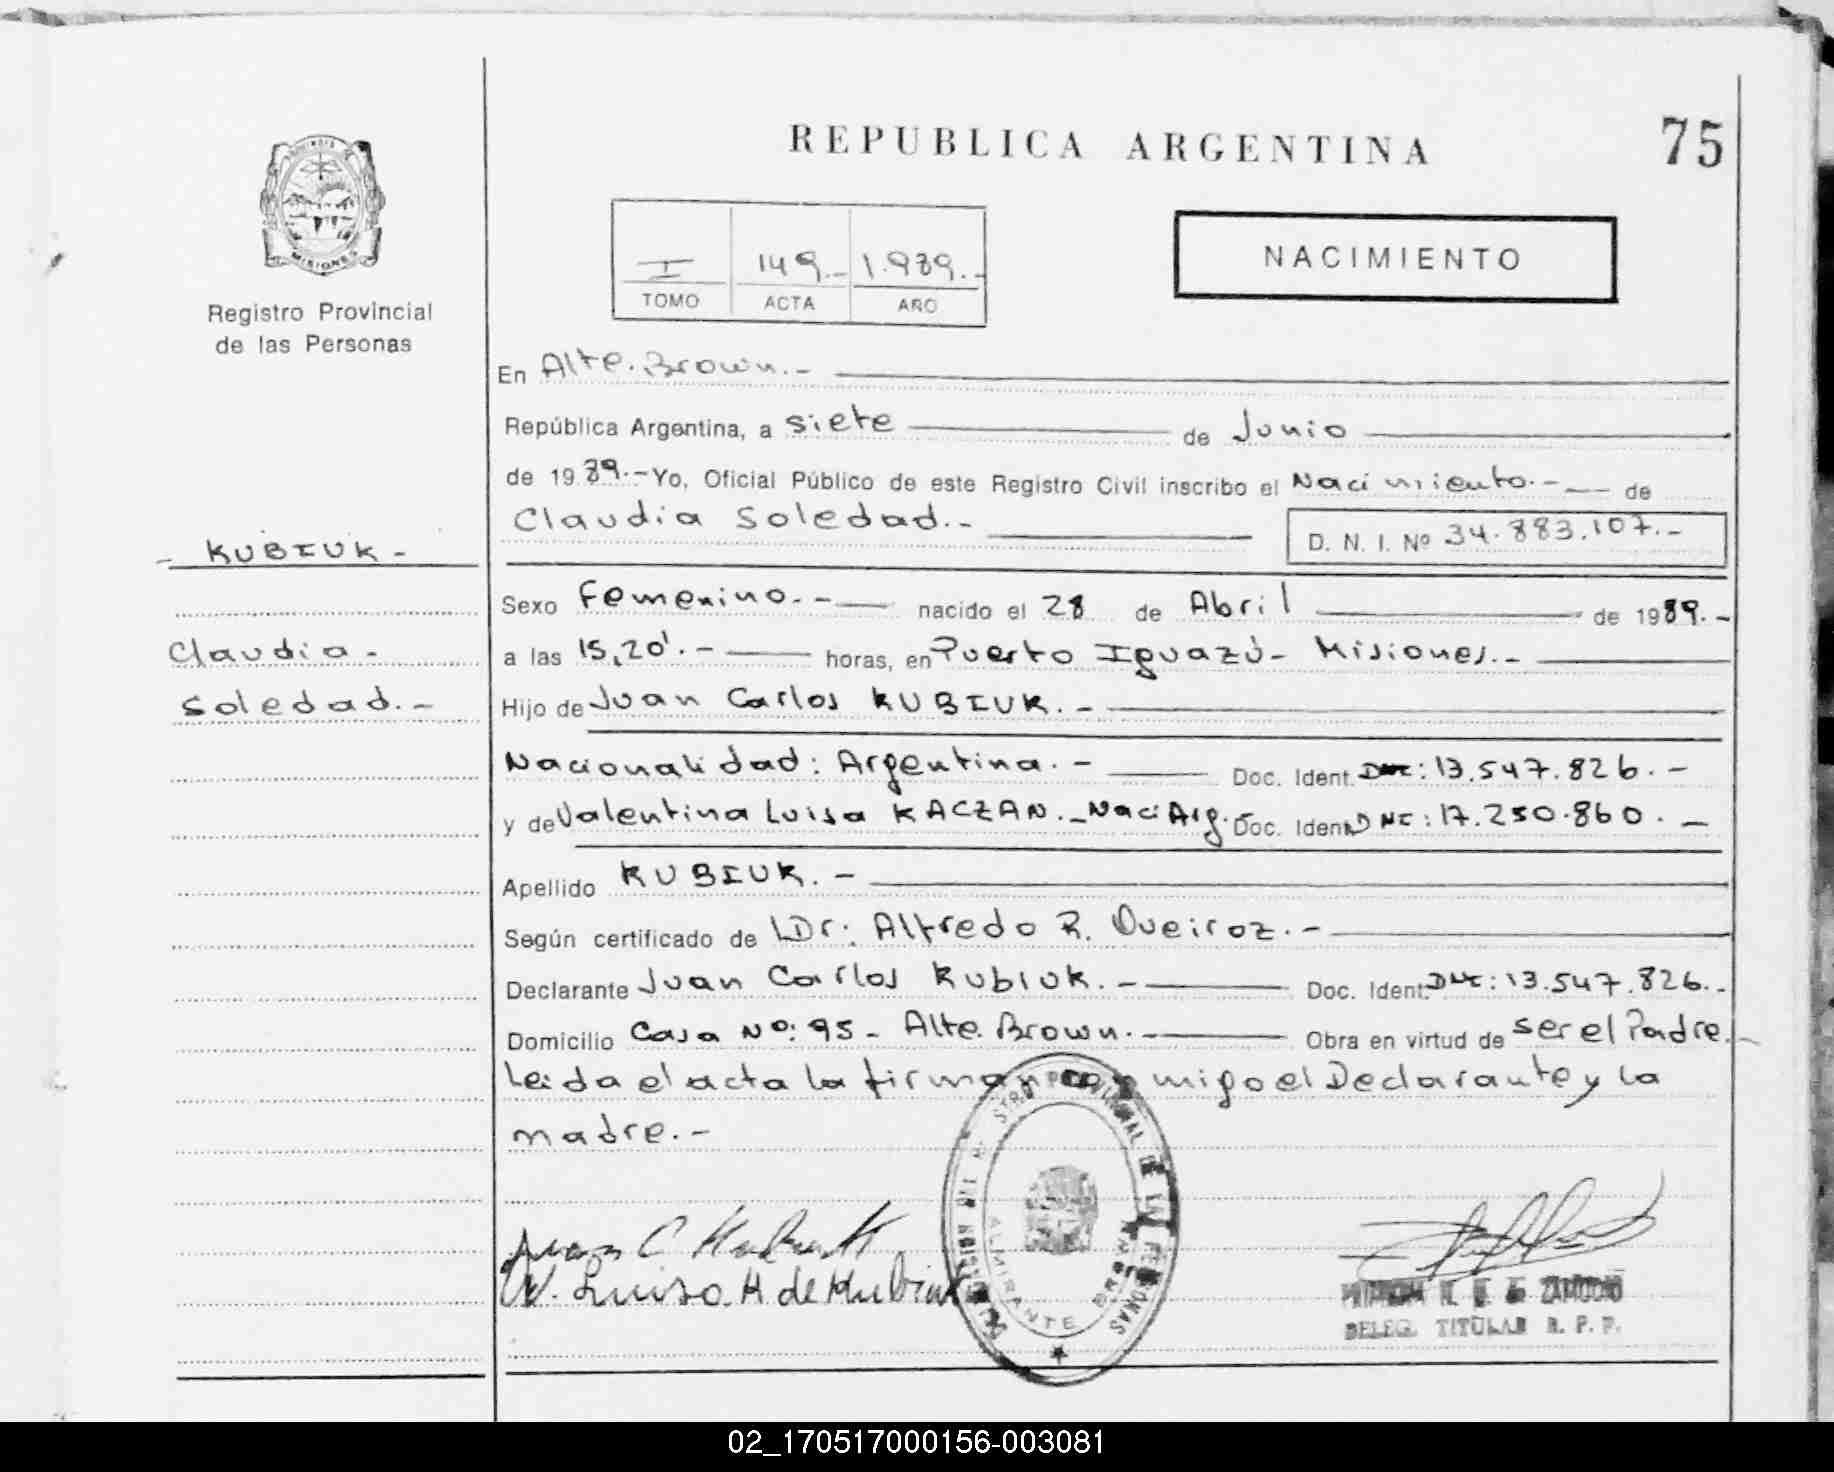 REPUBLICA ARGENTINA
75
PROVINCIA DE MISIONES
Registro Provincial
de las Personas
I 149.- 1.989.-
TOMO ACTA AÑO
NACIMIENTO
En Alte. Brown.-
República Argentina, a siete de Junio
de 1989.- Yo, Oficial Público de este Registro Civil inscribo el Nacimiento.- de
Claudia Soledad.-
D. N. I. Nº 34.883.107.-
- KUBIUK -
Claudia -
Soledad.-
Sexo Femenino.- nacido el 28 de Abril de 1989.-
a las 15,20'.- horas, en Puerto Iguazú - Misiones.-
Hijo de Juan Carlos KUBIUK.-
Nacionalidad: Argentina.- Doc. Ident. DNI: 13.547.826.-
y de Valentina Luisa KACZAN.- Naci Arg.- Doc. Ident. DNI: 17.250.860.-
Apellido KUBIUK.-
Según certificado de Dr. Alfredo R. Queiroz.-
Declarante Juan Carlos Kubiuk.- Doc. Ident. DNI: 13.547.826.-
Domicilio Casa Nº: 95 - Alte. Brown.- Obra en virtud de ser el Padre.-
Leida el acta la firman con migo el Declarante y la
madre.-
Juan C Kubiuk
V. Luisa K de Kubiuk
ALMIRANTE BROWN
DELEG. TITULAR R. P. P.
02_170517000156-003081